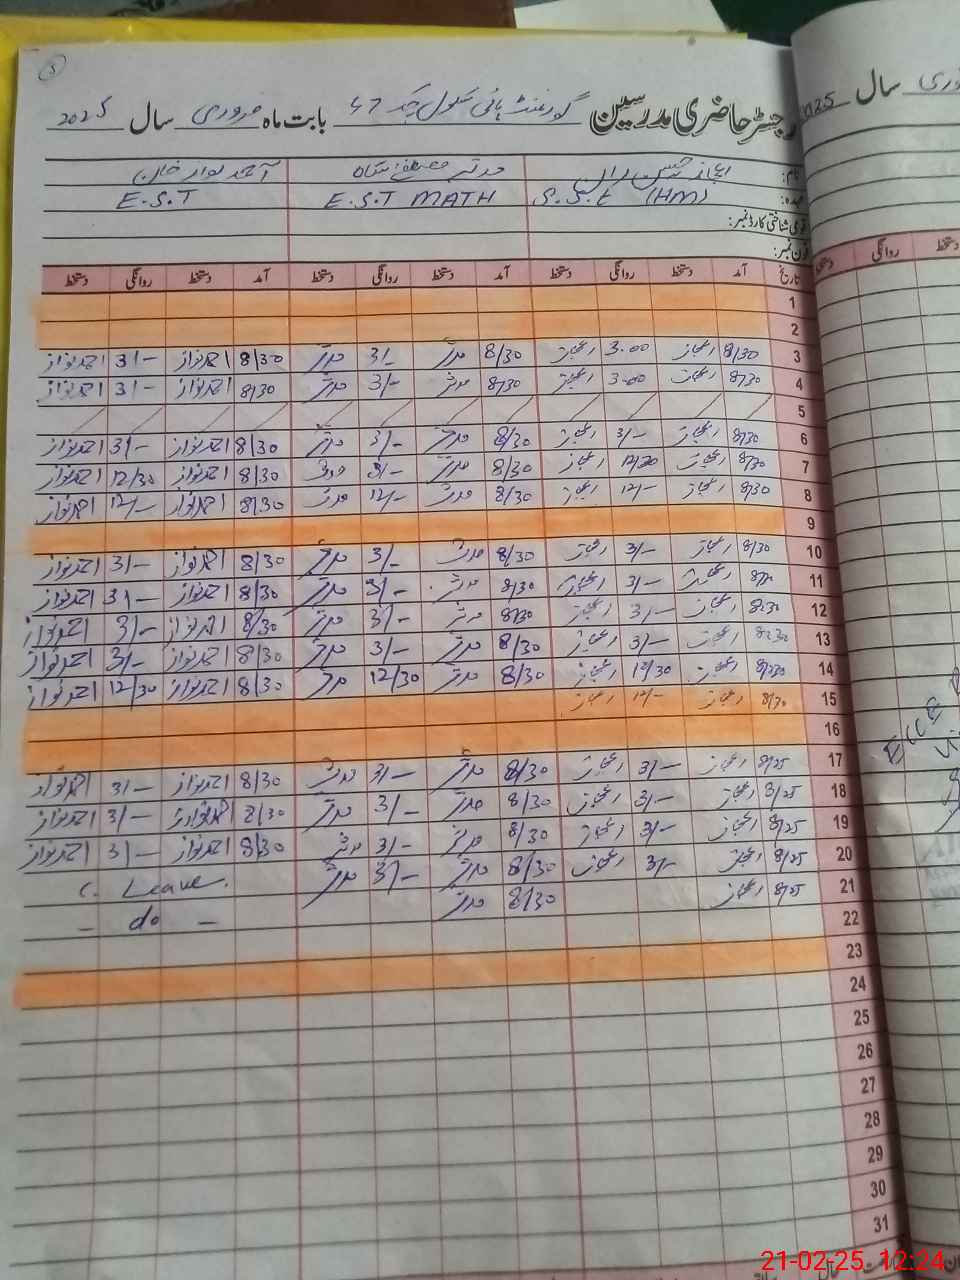 3
رجسٹر حاضری مدرسین گورنمنٹ ہائی سکول چک 47 بابت ماہ فروری سال 2025
نام: اعجاز حسین مدثر مصطفےٰ شاہ احمد نواز خان
عہدہ: S.S.E (HM) E.S.T MATH E.S.T
قومی شناختی کارڈ نمبر:
فون نمبر:
تاریخ آمد دستخط روانگی دستخط آمد دستخط روانگی دستخط آمد دستخط روانگی دستخط
1
2
3 8/30 اعجاز 3.00 اعجاز 8/30 مدثر 3/- مدثر 8/30 احمد نواز 3/- احمد نواز
4 8/30 اعجاز 3.00 اعجاز 8/30 مدثر 3/- مدثر 8/30 احمد نواز 3/- احمد نواز
5
6 8/30 اعجاز 3/- اعجاز 8/30 مدثر 3/- مدثر 8/30 احمد نواز 3/- احمد نواز
7 8/30 اعجاز 12/30 اعجاز 8/30 مدثر 3/- مدثر 8/30 احمد نواز 12/30 احمد نواز
8 8/30 اعجاز 12/- اعجاز 8/30 مدثر 12/- مدثر 8/30 احمد نواز 12/- احمد نواز
9
10 8/30 اعجاز 3/- اعجاز 8/30 مدثر 3/- مدثر 8/30 احمد نواز 3/- احمد نواز
11 اعجاز 3/- اعجاز 8/30 مدثر 3/- مدثر 8/30 احمد نواز 3/- احمد نواز
12 8:30 اعجاز 3/- اعجاز 8/30 مدثر 3/- مدثر 8/30 احمد نواز 3/- احمد نواز
13 8:30 اعجاز 3/- اعجاز 8/30 مدثر 3/- مدثر 8/30 احمد نواز 3/- احمد نواز
14 8/30 اعجاز 12/30 اعجاز 8/30 مدثر 12/30 مدثر 8/30 احمد نواز 12/30 احمد نواز
15 8/30 اعجاز 12/- اعجاز
16
17 8/25 اعجاز 3/- اعجاز 8/30 مدثر 3/- مدثر 8/30 احمد نواز 3/- احمد نواز
18 8/25 اعجاز 3/- اعجاز 8/30 مدثر 3/- مدثر 8/30 احمد نواز 3/- احمد نواز
19 8/25 اعجاز 3/- اعجاز 8/30 مدثر 3/- مدثر 8/30 احمد نواز 3/- احمد نواز
20 8/25 اعجاز 3/- اعجاز 8/30 مدثر 3/- مدثر C. Leave.
21 8/25 اعجاز 8/30 مدثر - do -
22
23
24
25
26
27
28
29
30
31
2025 سال
روانگی
ECCE
21-02-25 12:24